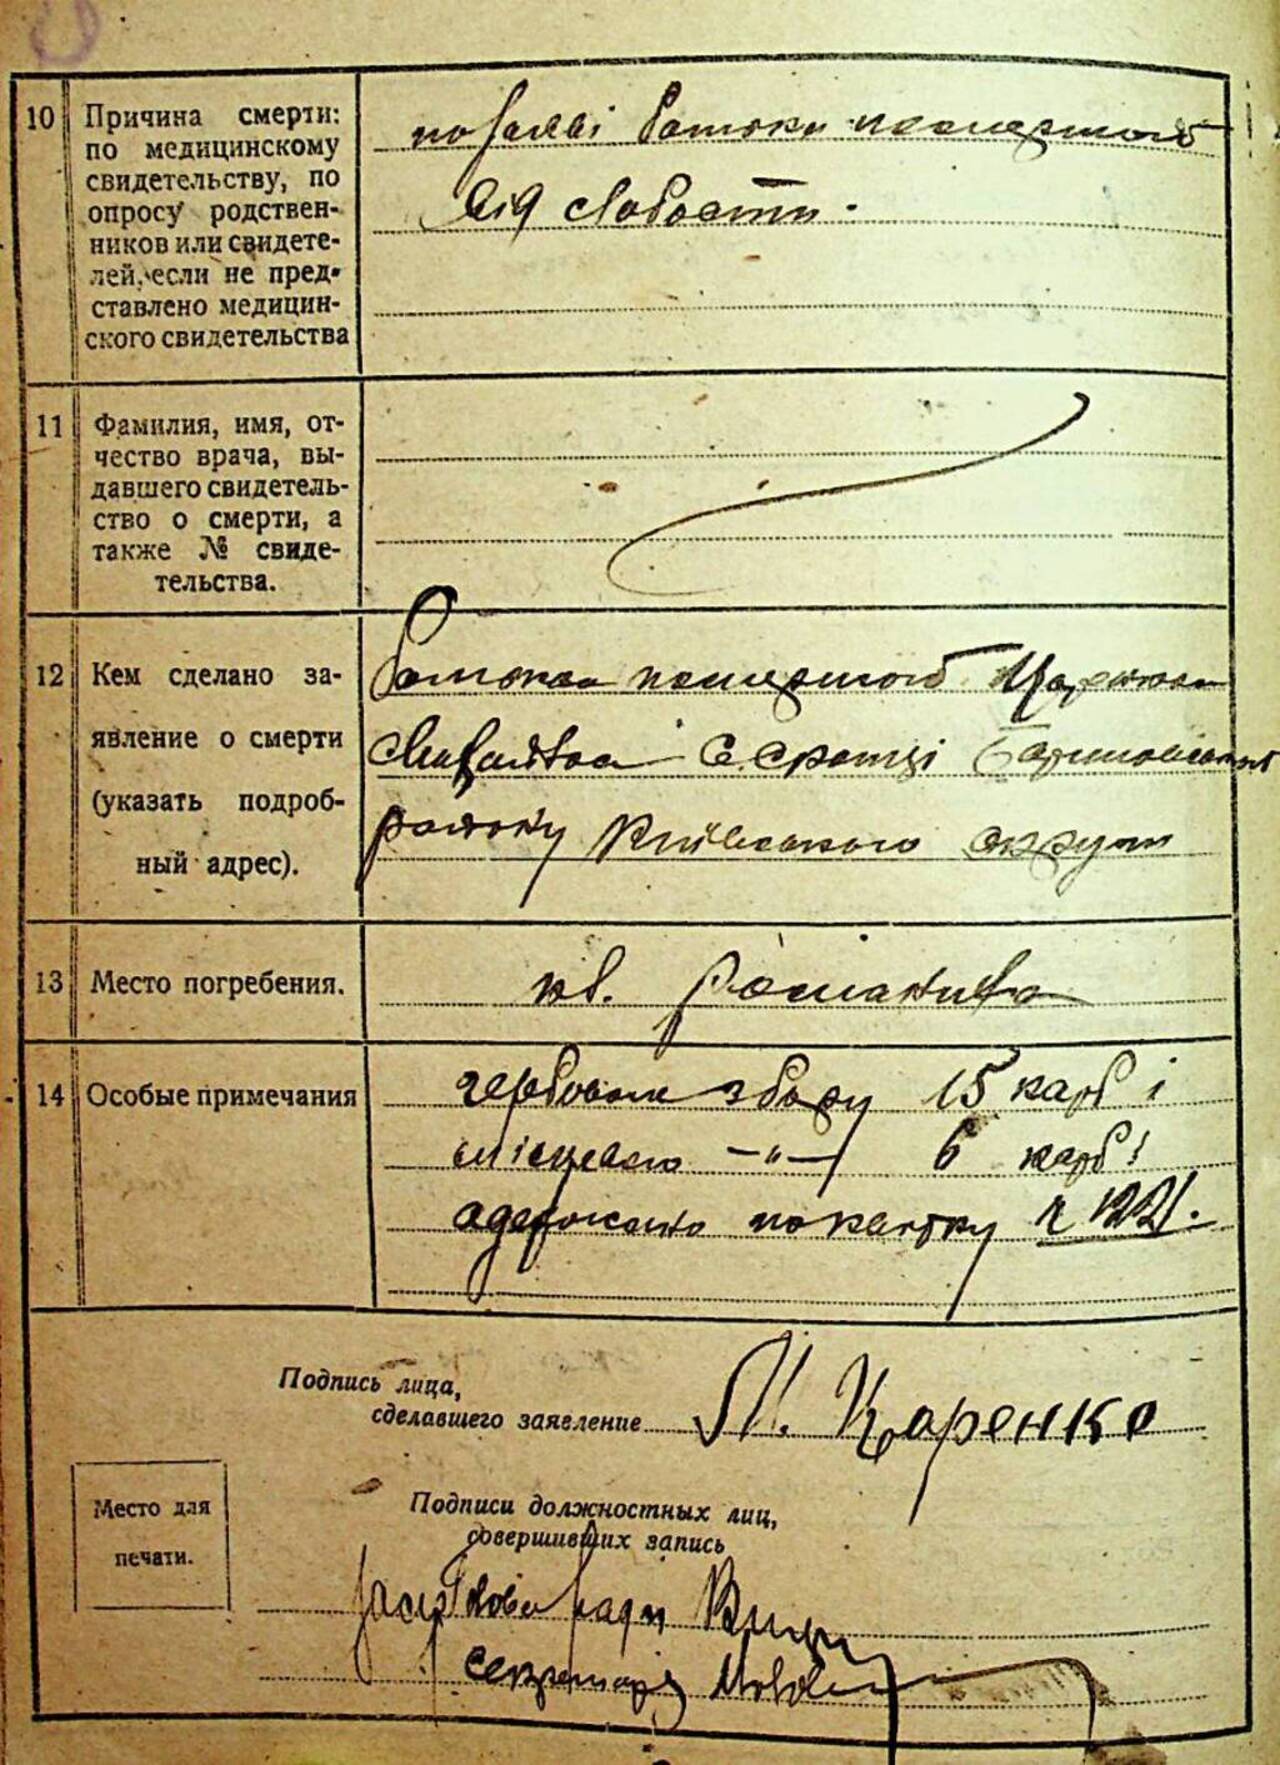 10 Причина смерти:
по медицинскому
свидетельству, по
опросу родствен-
ников или свидете-
лей, если не пред-
ставлено медицин-
ского свидетельства
по заяві батька помершого
від слабости.
11 Фамилия, имя, от-
чество врача, вы-
давшего свидетель-
ство о смерти, а
также № свиде-
тельства.
12 Кем сделано за-
явление о смерти
(указать подроб-
ный адрес).
Батьком помершого Царенком
району Київського округи
13 Место погребения.
кв. Романівка
14 Особые примечания
гербового збору 15 карб і
місцевого —"— 6 карб!
одержано по квитку
Подпись лица,
сделавшего заявление М. Царенко
Место для
печати.
Подписи должностных лиц,
совершивших запись
ради
Секретарь